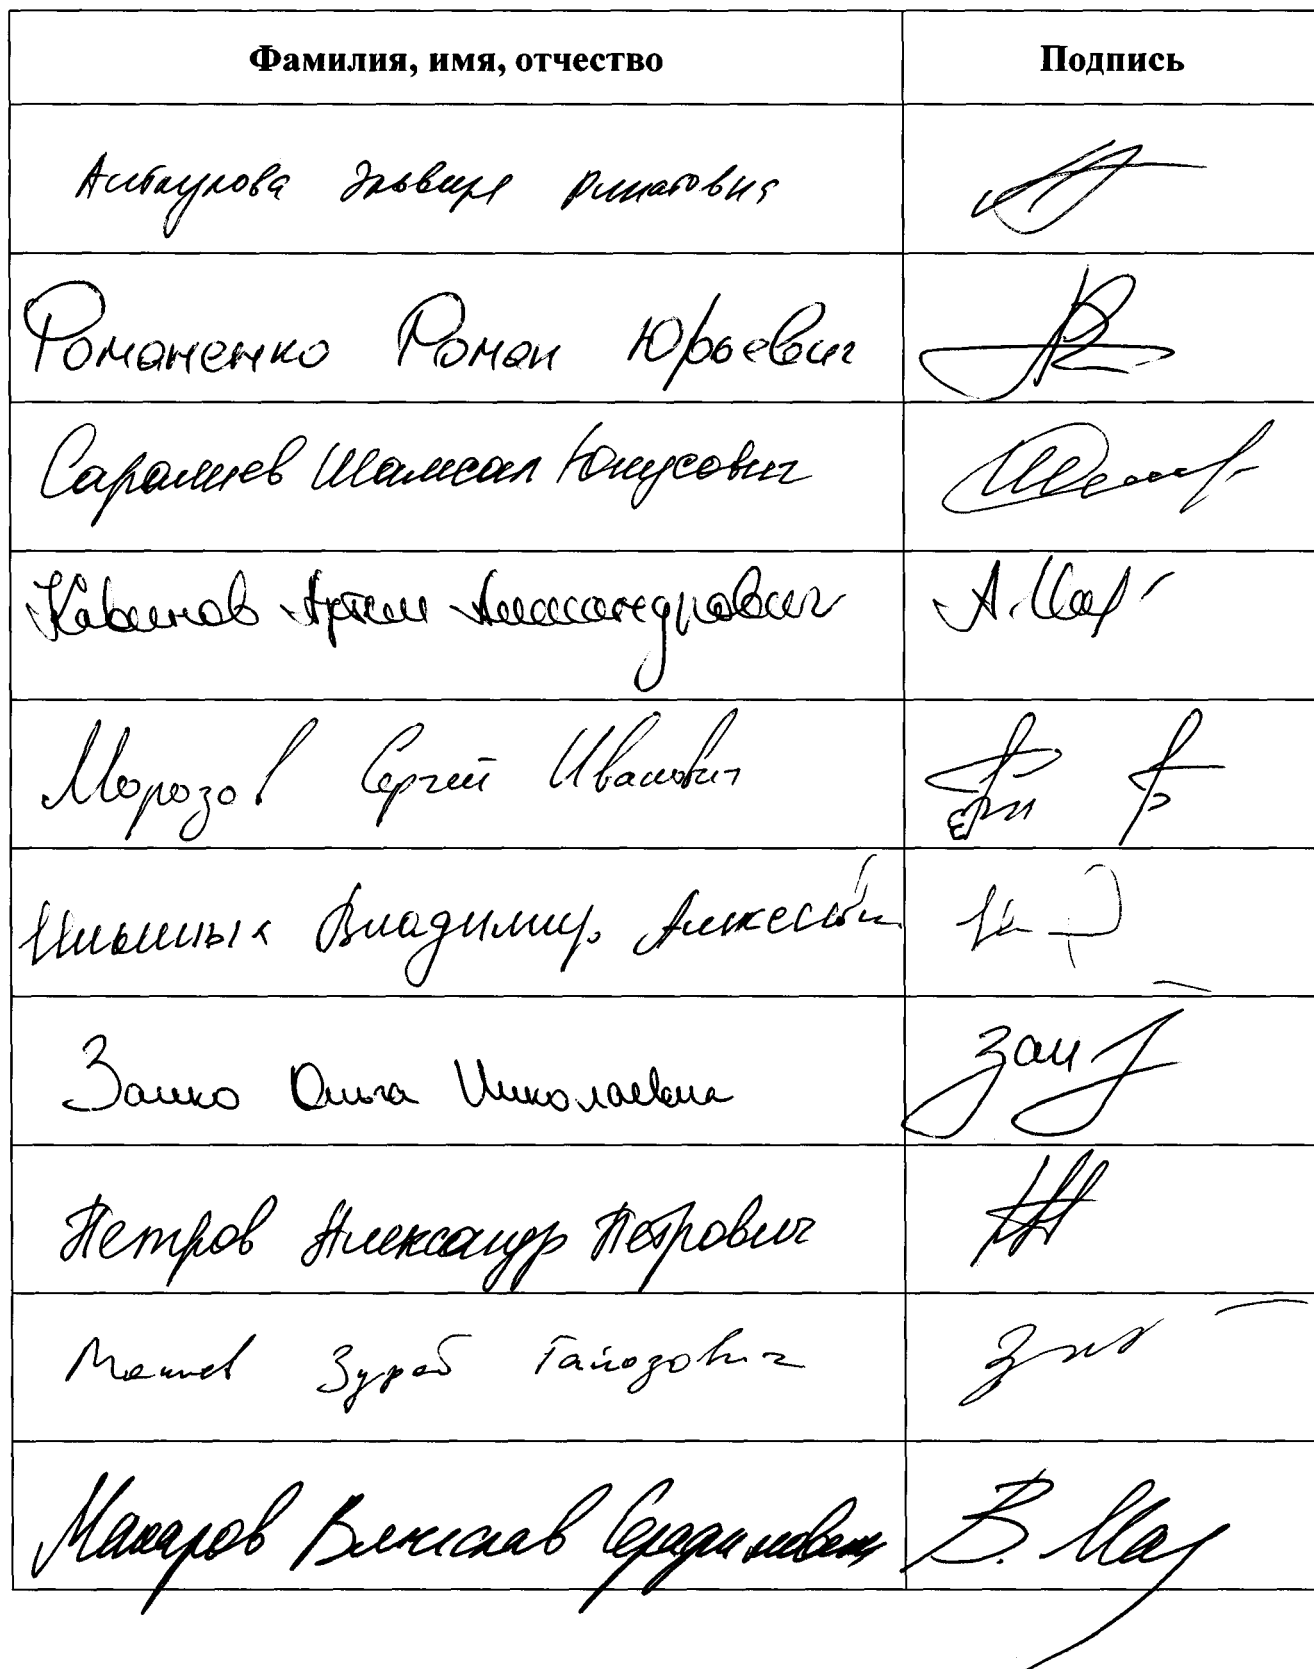 Фамилия, имя, отчество Подпись
Аиткулова Эльвира Ринатовна
Романенко Роман Юрьевич
Саралиев Шамсаил Юнусович
Кавинов Артем Александрович А.
Морозов Сергей Иванович
Ильиных Владимир Алексеевич
Заико Ольга Николаевна Заи
Петров Александр Петрович
Макиев Зураб Гайозович
Макаров Вячеслав Серафимович В. Мак